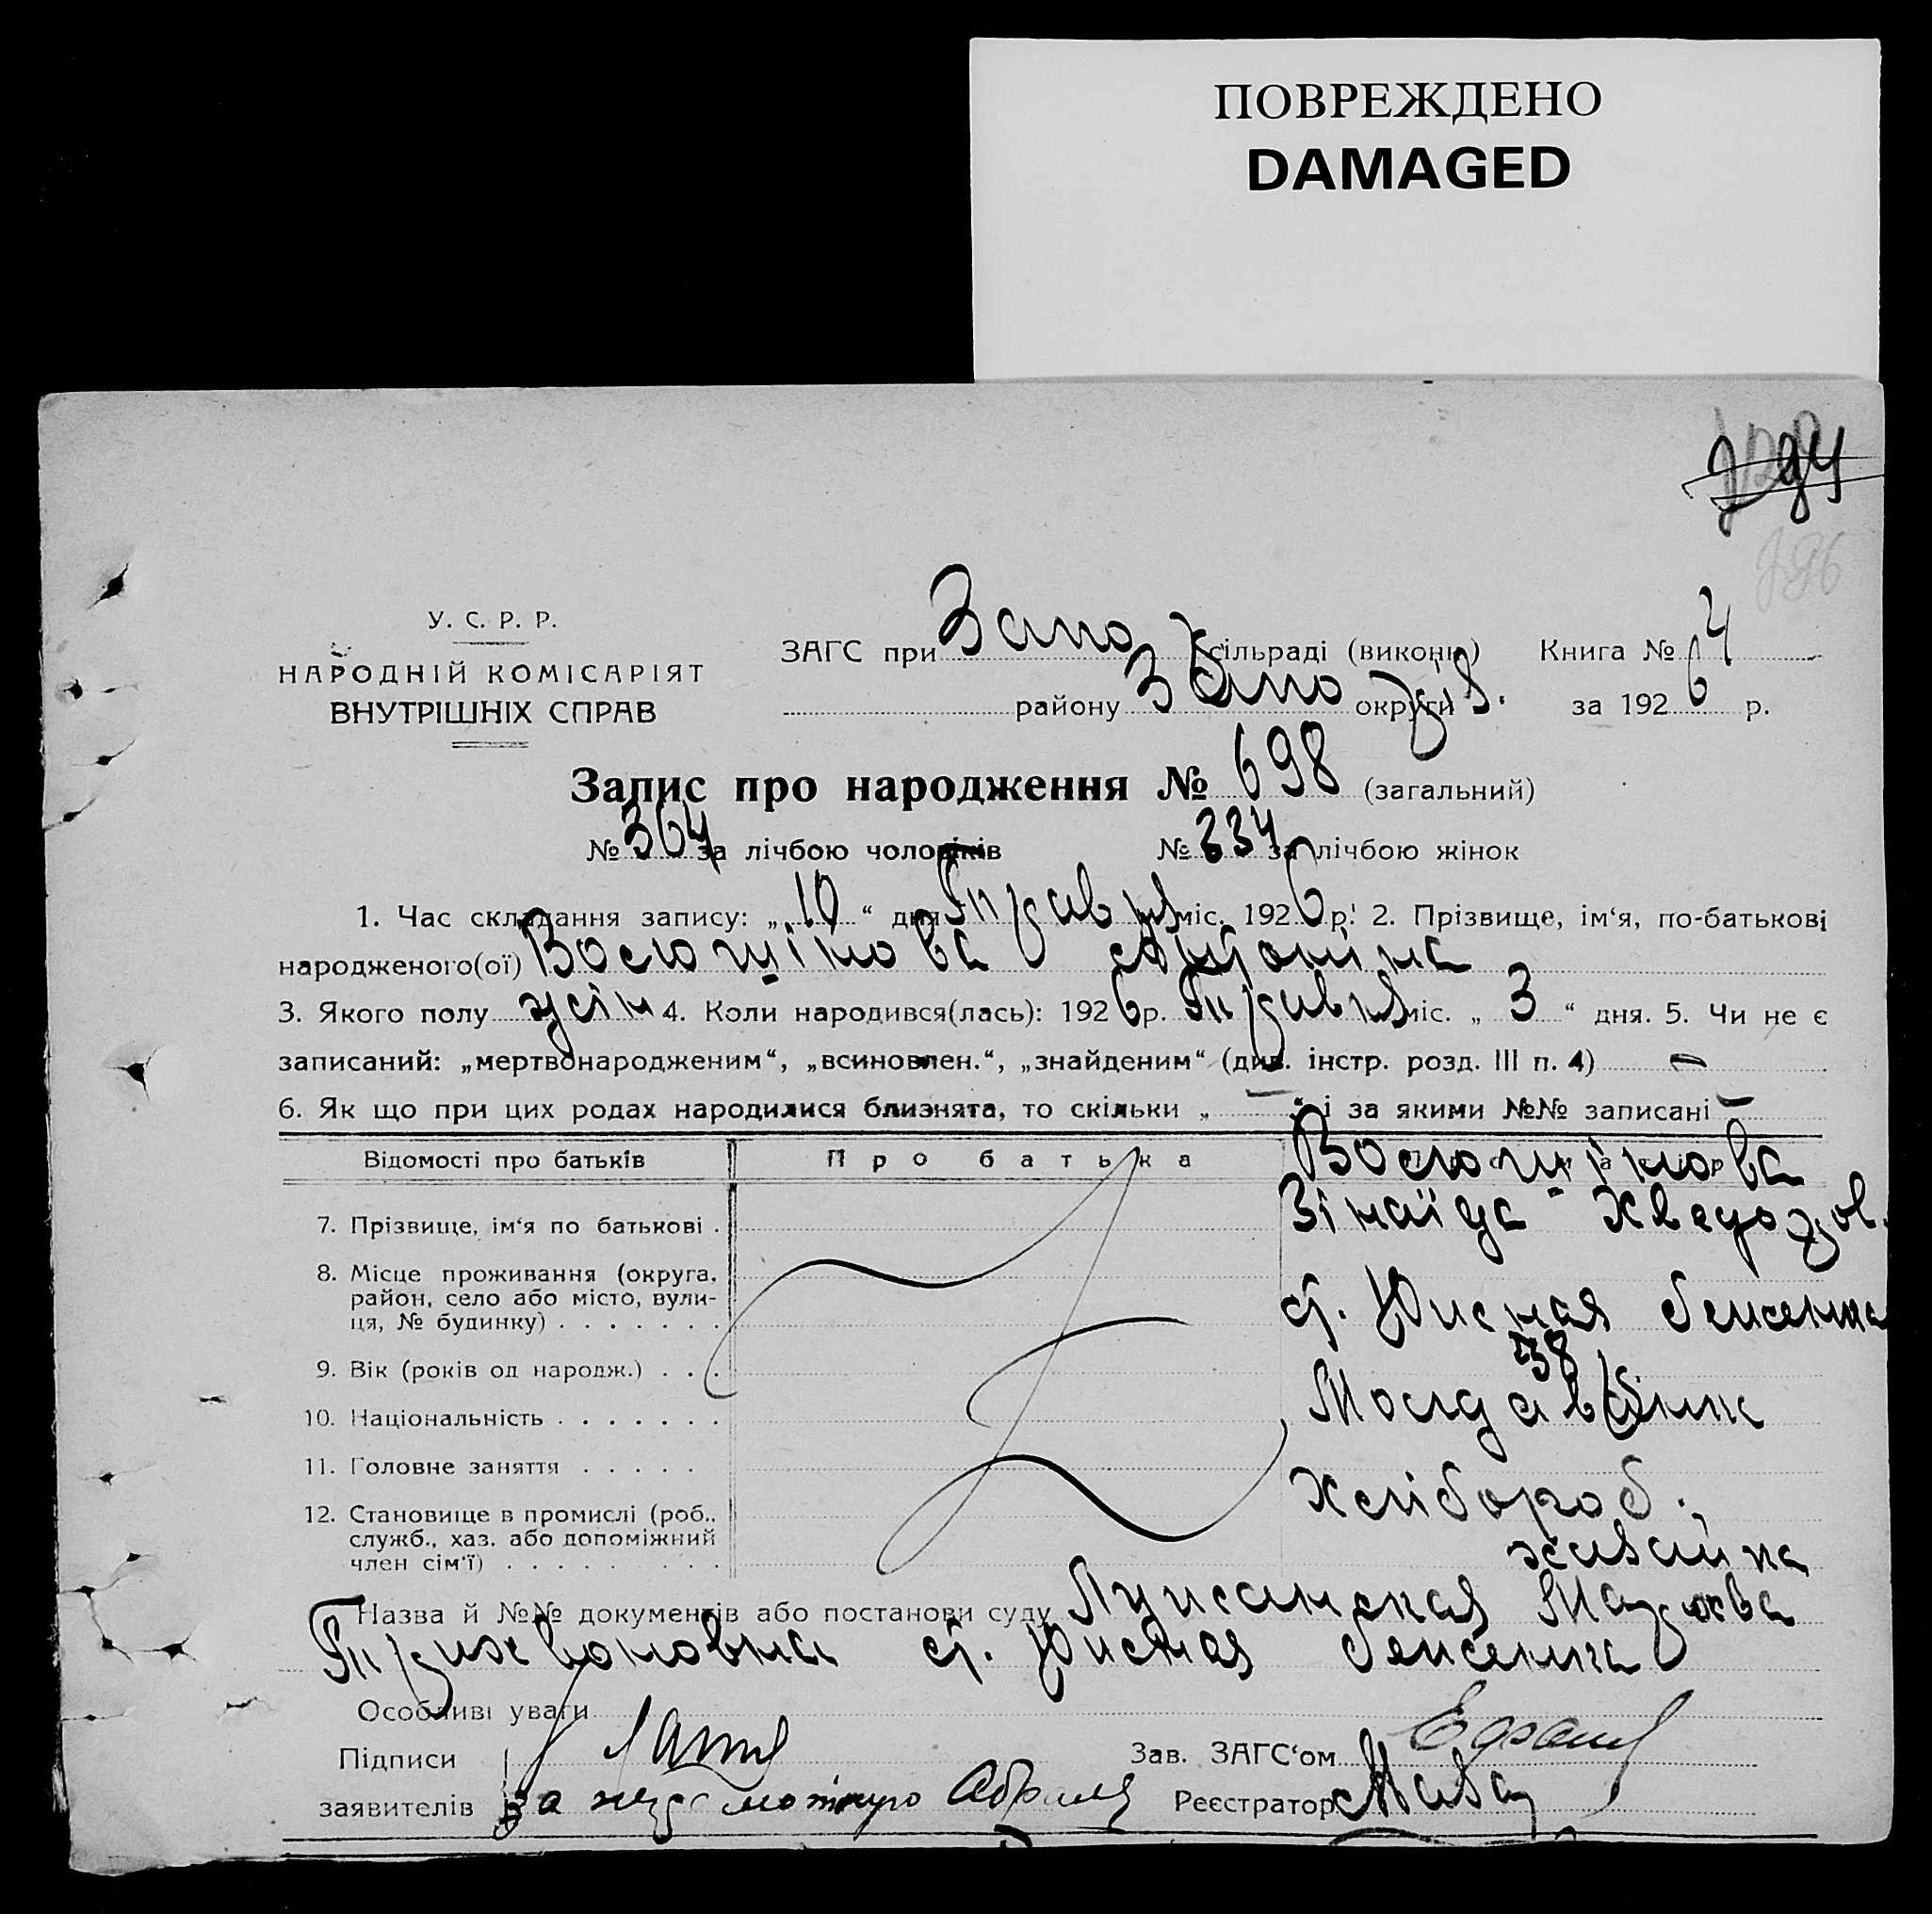 ПОВРЕЖДЕНО
DAMAGED
294
396
У. С. Р. Р.
НАРОДНІЙ КОМІСАРІЯТ
ВНУТРІШНІХ СПРАВ
ЗАГС при Запо сільраді (виконк.) Книга № 4
району Запо округи за 1926 р.
Запис про народження № 698 (загальний)
№ 364 за лічбою чоловіків № 334 за лічбою жінок
1. Час складання запису: „10“ дня Травня міс. 1926 р. 2. Прізвище, ім‘я, по-батькові
народженого(ої)
3. Якого полу жін 4. Коли народився(лась): 1926 р. Травня міс. „3“ дня. 5. Чи не є
записаний: „мертвонародженим“, „всиновлен.“, „знайденим“ (див. інстр. розд. III п. 4) —
6. Як що при цих родах народилися близнята, то скільки „—“ і за якими №№ записані —
Відомості про батьків Про батька
7. Прізвище, ім‘я по батькові . Зінаїда Хведоров.
8. Місце проживання (округа, район, село або місто, вулиця, № будинку) . . . . . . . ст.
9. Вік (років од народж.) . . . 38
10. Національність . . . . . . . Молдав
11. Головне заняття . . . . . Хлібороб.
12. Становище в промислі (роб., служб., хаз. або допоміжний член сім‘ї) . . . . . . . . . хазяйка
Назва й №№ документів або постанови суду
Трихвоновна ст.
Особливі уваги
Підписи Зав. ЗАГС‘ом
заявителів за Реєстратор